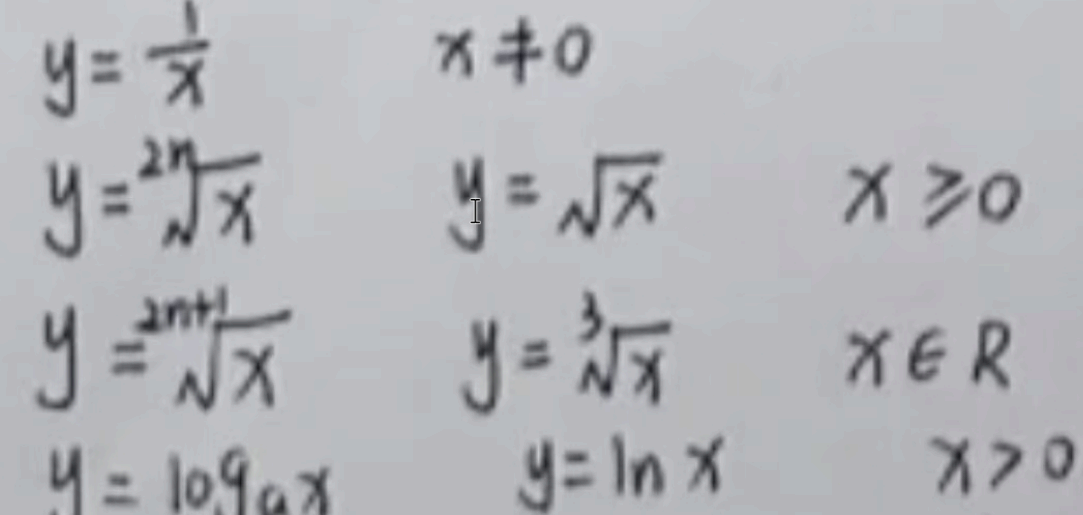 y = 1/x x ≠ 0
y = ²ⁿ√x y = √x x ≥ 0
y = ²ⁿ⁺¹√x y = ³√x x ∈ R
y = logₐx y = ln x x > 0